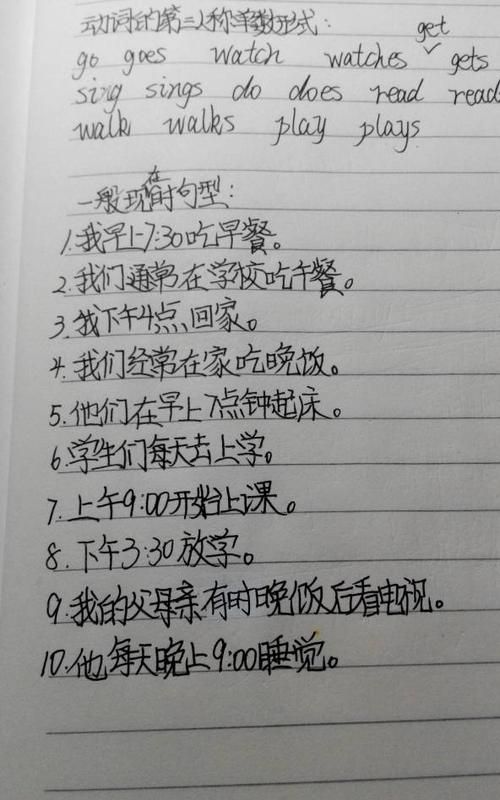 动词的第三人称单数形式:
get
go goes watch watches ✓ gets
sing sings do does read read
walk walks play plays
一般现在时句型:
1.我早上7:30吃早餐。
2.我们通常在学校吃午餐。
3.我下午4点回家。
4.我们经常在家吃晚饭。
5.他们在早上7点钟起床。
6.学生们每天去上学。
7.上午9:00开始上课。
8.下午3:30放学。
9.我的父母亲有时晚饭后看电视。
10.他每天晚上9:00睡觉。